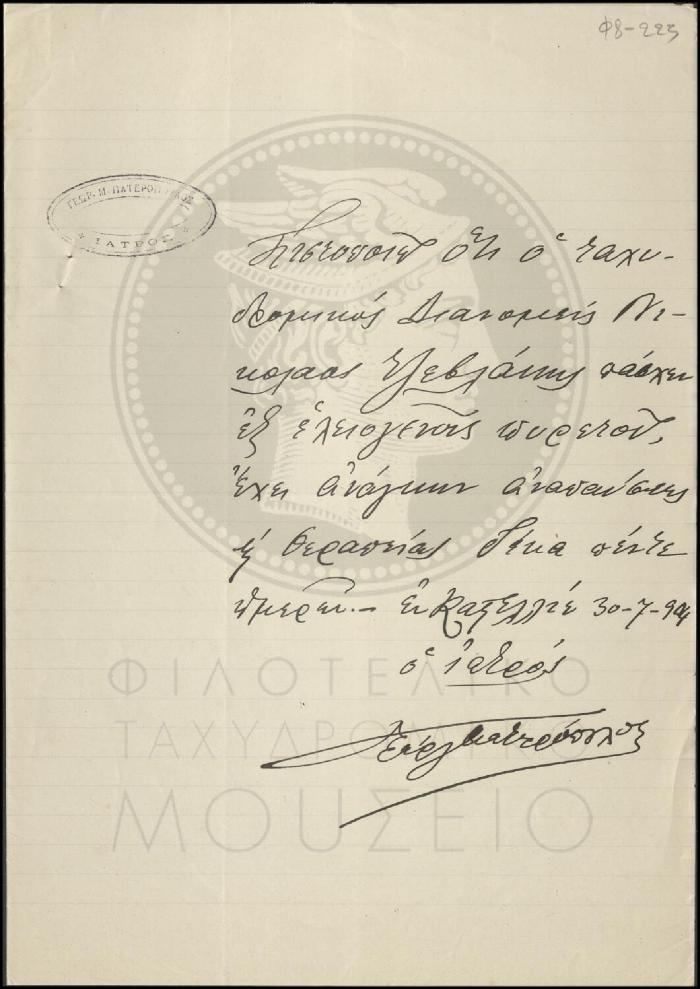 Φ8-223
ΓΕΩΡ. Μ. ΠΑΤΕΡΟΠΟΥΛΟΣ
ΙΑΤΡΟΣ
Πιστοποιῶ ὅτι ὁ ταχυ-
δρομικός Διανομεύς Νι-
κολαος πάσχει
ἐξ ἑλειογενοῦς πυρετοῦ,
Ἔχει ἀνάγκην ἀναπαύσεως
& θεραπείας δέκα πέντε
ἡμερῶν.– ἐν 30-7-94
ὁ ἰατρός
ΦΙΛΟΤΕΛΙΚΟ
ΤΑΧΥΔΡΟΜΙΚΟ
ΜΟΥΣΕΙΟ